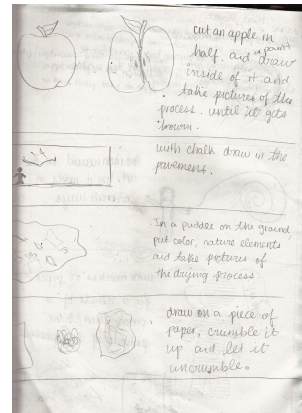 cut an apple in
half. and draw
or paint
inside of it and
take pictures of the
process. until it gets
brown.
with chalk draw in the
pavement.
In a puddle on the ground
put color, nature elements
and take pictures of
the drying process.
draw on a piece of
paper, crumble it
up and let it
uncrumble.